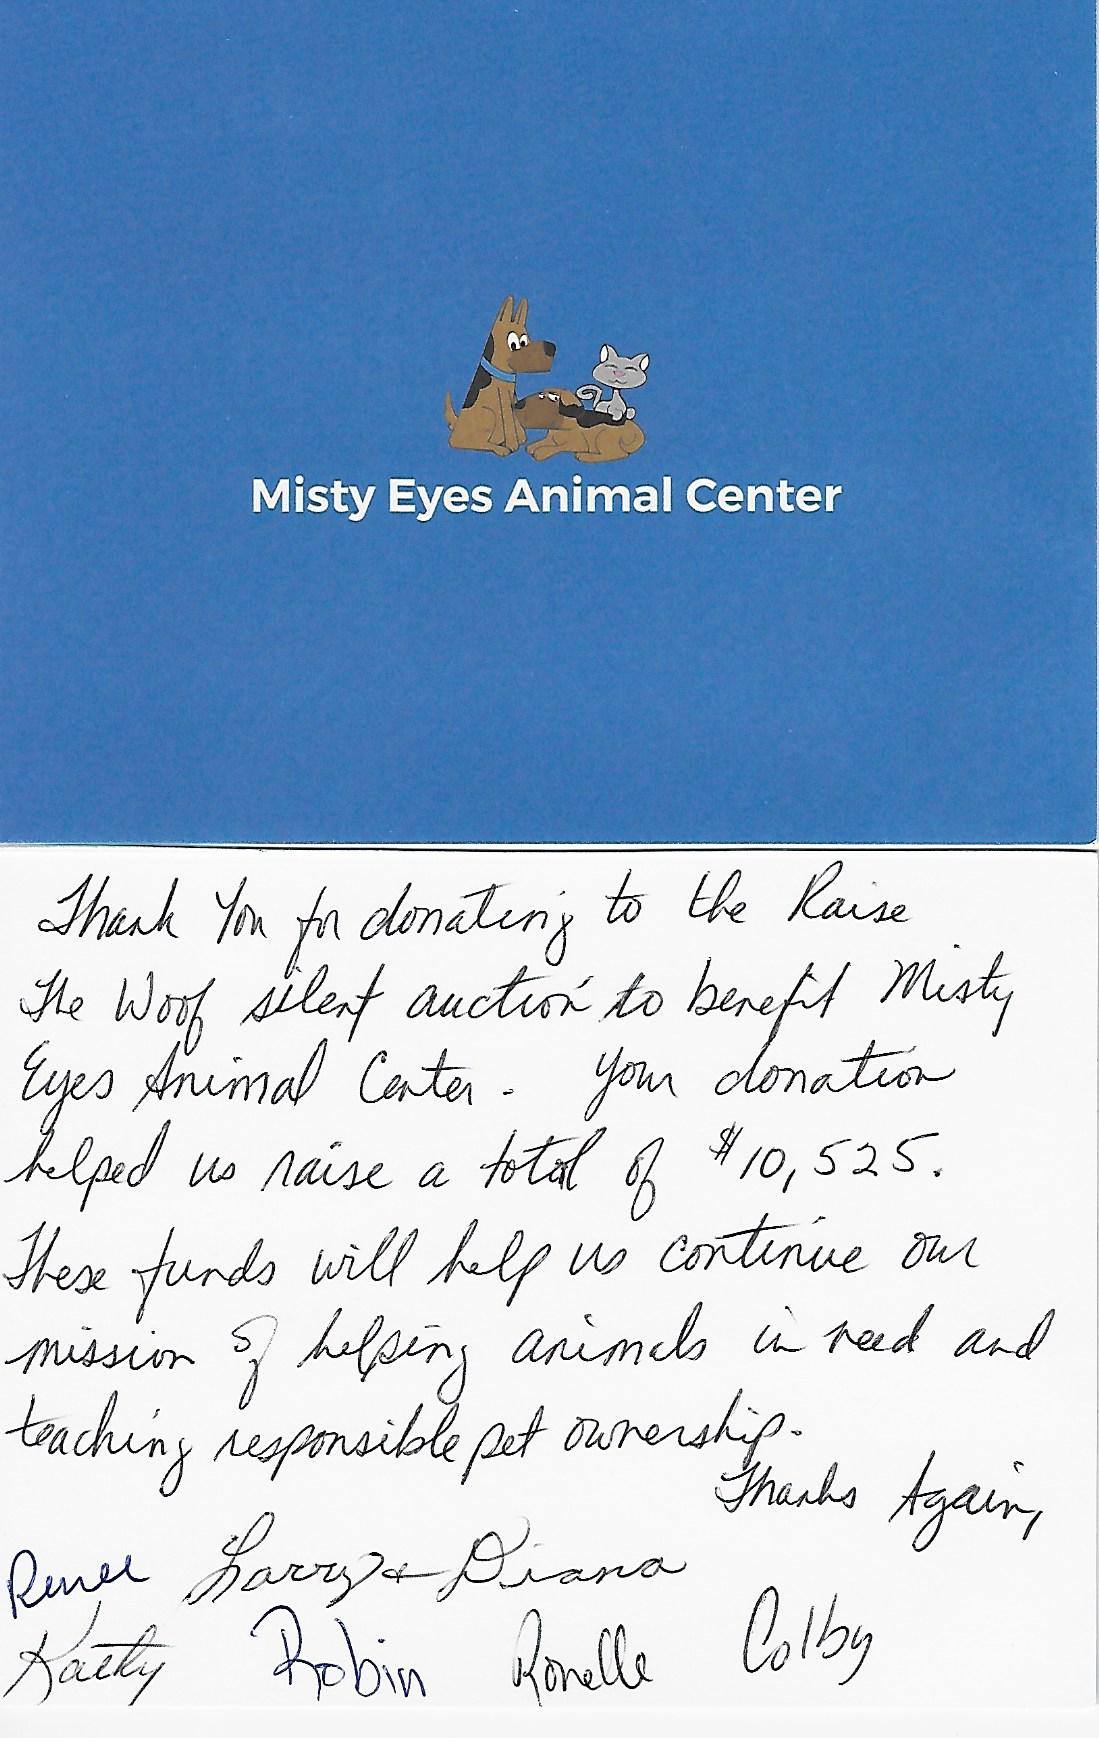 Misty Eyes Animal Center
Thank You for donating to the Raise
The Woof silent auction to benefit Misty
Eyes Animal Center. Your donation
helped us raise a total of $10,525.
These funds will help us continue our
mission of helping animals in need and
teaching responsible pet ownership.
Thanks Again,
Renee Larry & Diana
Kathy Robin Ronelle Colby